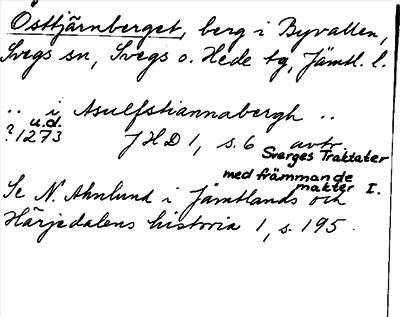 Östtjärnberget, berg i Byvallen,
Svegs sn, Svegs o. Hede tg, Jämtl. l.
.. i Asulfstiannabergh ..
u.d.
? 1273 JHD 1, s. 6 avtr.
Sverges Traktater
med främmande
makter I.
Se N. Ahnlund i Jämtlands och
Härjedalens historia 1, s. 195.